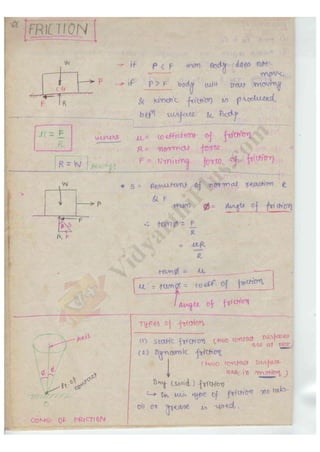 FRICTION
W
P
F
R
→ if P < F then body does not
move
→ if P > F body will start moving
& kinetic friction is produced
betn surface & body
μ = F
R
where
μ = coefficient of friction
R = normal force
F = limiting force of friction
R = W
W
P
R
F
* S = Resultant of normal reaction R
& F
then Ø = Angle of friction
∴ tanØ = F
R
= μR
R
tanØ = μ
μ = tanØ = coeff of friction
Angle of friction
Axis
Pt of
contact
CONE OF FRICTION
Types of friction
(1) Static friction (two contact surfaces
are at rest)
(2) Dynamic friction
(two contact surface
are in motion)
Dry (solid) friction
→ In this type of friction no lub.
oil or grease is used.
Vidyarthiplus.com